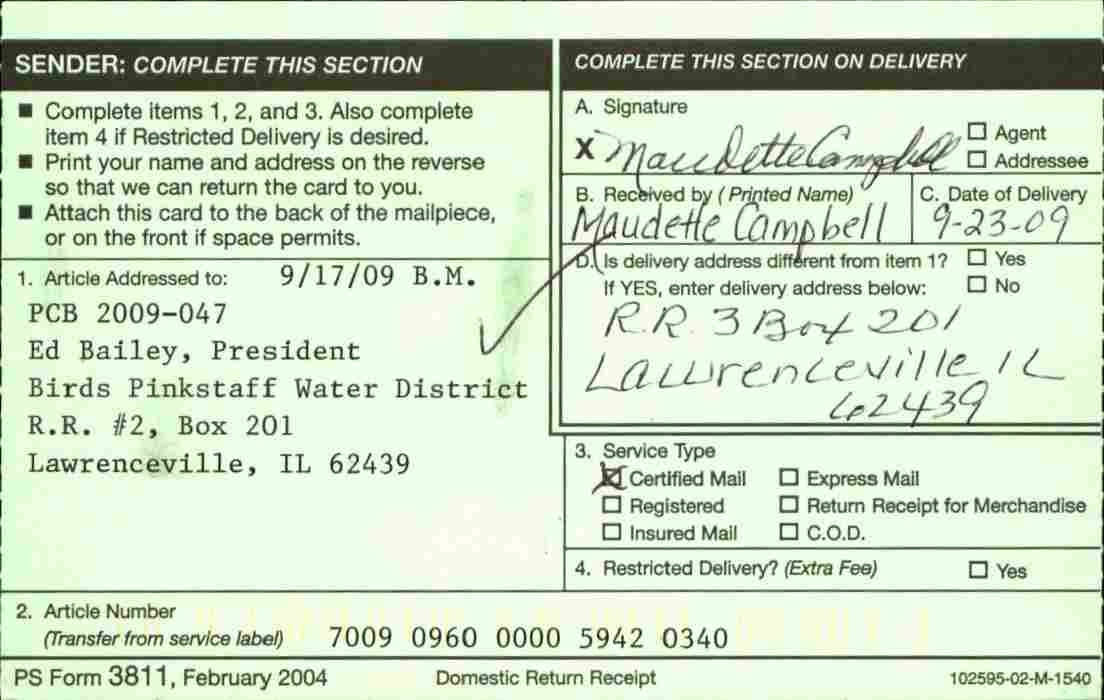 SENDER: COMPLETE THIS SECTION
■ Complete items 1, 2, and 3. Also complete
item 4 if Restricted Delivery is desired.
■ Print your name and address on the reverse
so that we can return the card to you.
■ Attach this card to the back of the mailpiece,
or on the front if space permits.
1. Article Addressed to: 9/17/09 B.M.
PCB 2009-047
Ed Bailey, President
Birds Pinkstaff Water District
R.R. #2, Box 201
Lawrenceville, IL 62439
COMPLETE THIS SECTION ON DELIVERY
A. Signature
X Maudette Campbell
☐ Agent
☐ Addressee
B. Received by (Printed Name)
Maudette Campbell
C. Date of Delivery
9-23-09
D. Is delivery address different from item 1? ☐ Yes
If YES, enter delivery address below: ☐ No
R.R. 3 Box 201
Lawrenceville IL
62439
3. Service Type
☒ Certified Mail ☐ Express Mail
☐ Registered ☐ Return Receipt for Merchandise
☐ Insured Mail ☐ C.O.D.
4. Restricted Delivery? (Extra Fee) ☐ Yes
2. Article Number
(Transfer from service label) 7009 0960 0000 5942 0340
PS Form 3811, February 2004 Domestic Return Receipt 102595-02-M-1540